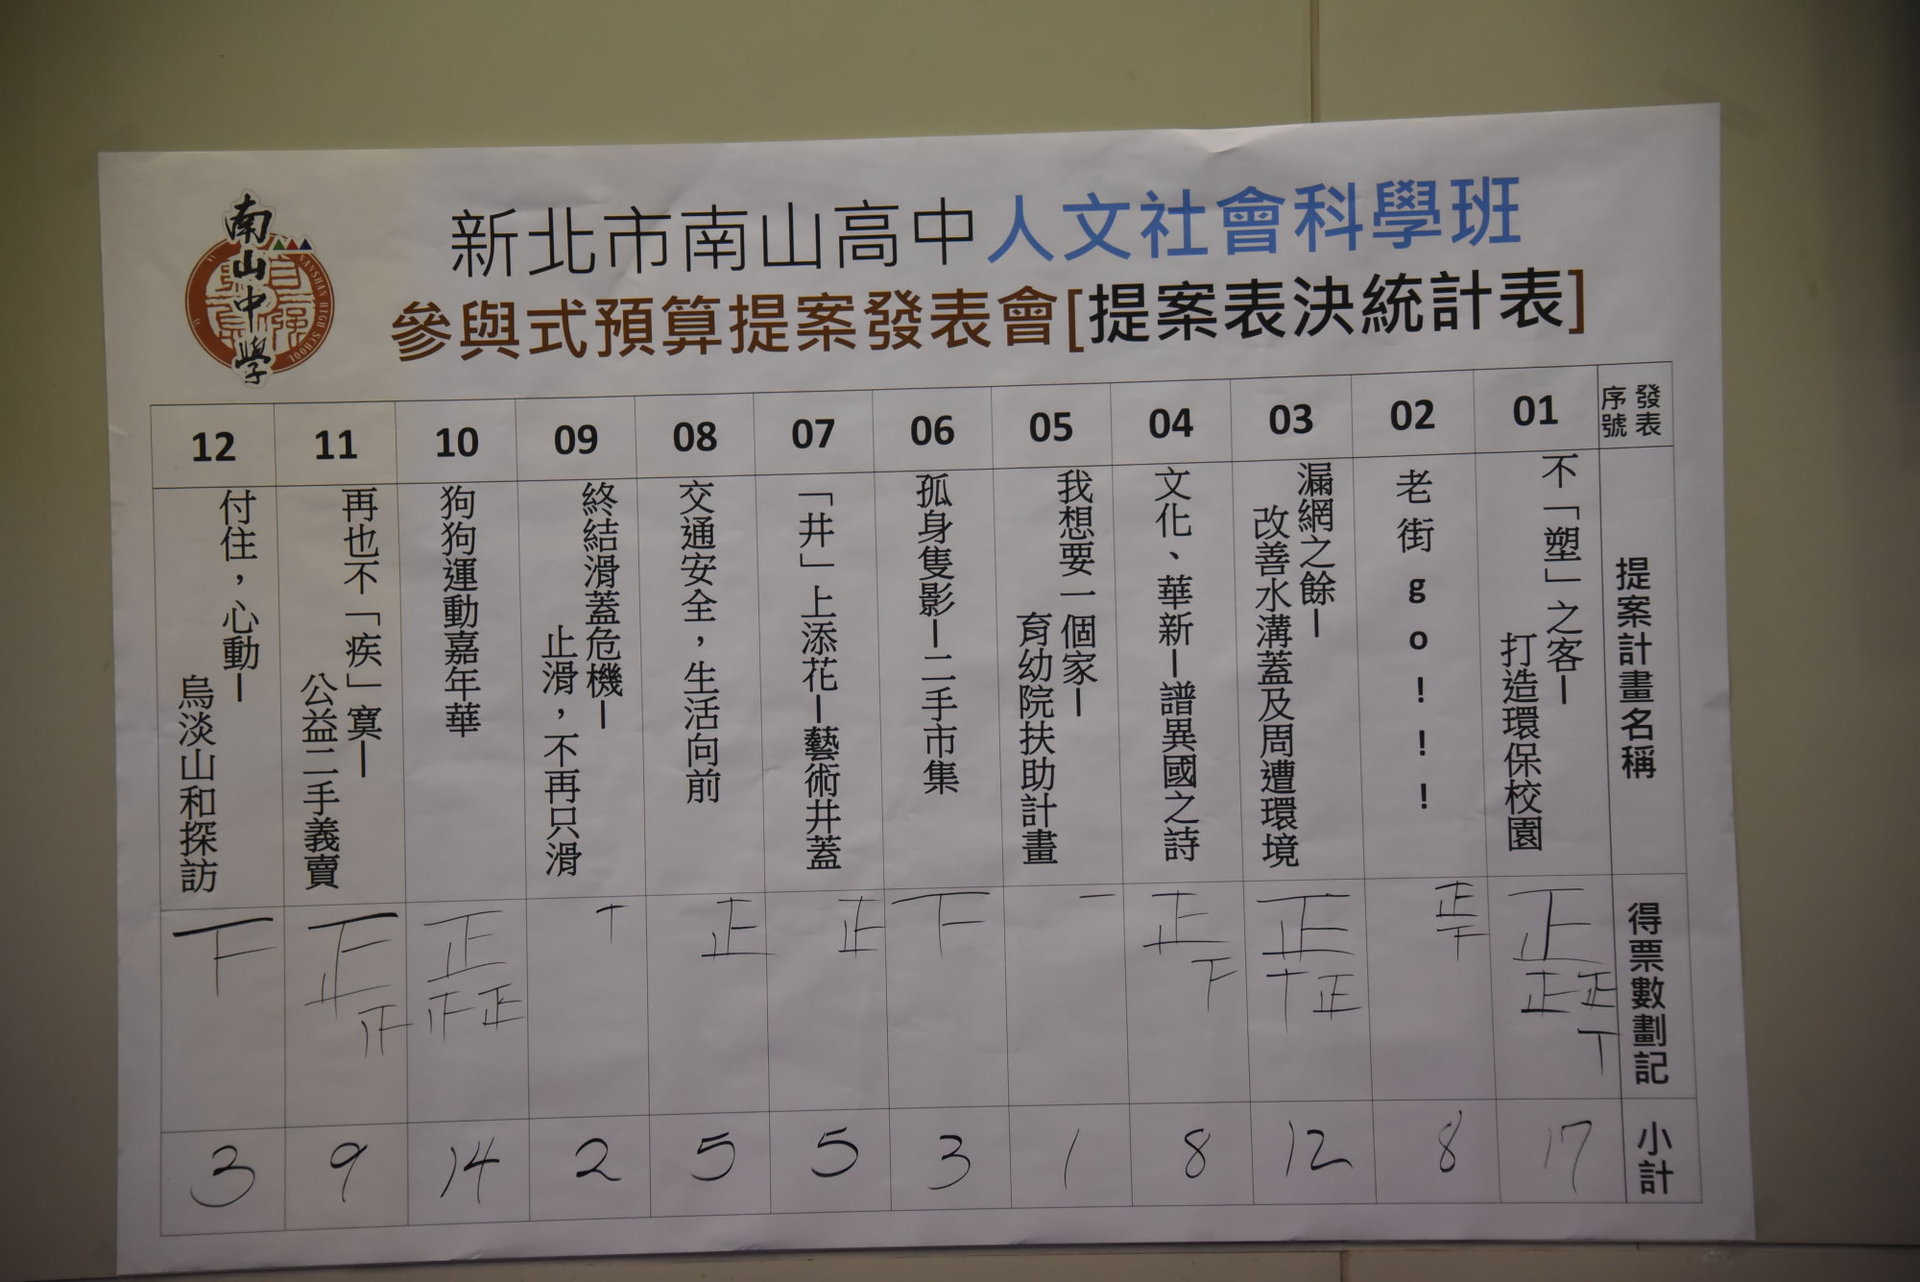 南山中學
NANSHAN HIGH SCHOOL
新北市南山高中人文社會科學班
參與式預算提案發表會[提案表決統計表]
發表序號
提案計畫名稱
得票數劃記
小計
01
不「塑」之客—
打造環保校園
正正正丅
17
02
老街go!!!
正下
8
03
漏網之餘—
改善水溝蓋及周遭環境
正正丅
12
04
文化、華新—譜異國之詩
正下
8
05
我想要一個家—
育幼院扶助計畫
一
1
06
孤身隻影—二手市集
下
3
07
「井」上添花—藝術井蓋
正
5
08
交通安全，生活向前
正
5
09
終結滑蓋危機—
止滑，不再只滑
丅
2
10
狗狗運動嘉年華
正正
14
11
再也不「疾」寞—
公益二手義賣
正
9
12
付住，心動—
烏淡山和探訪
下
3